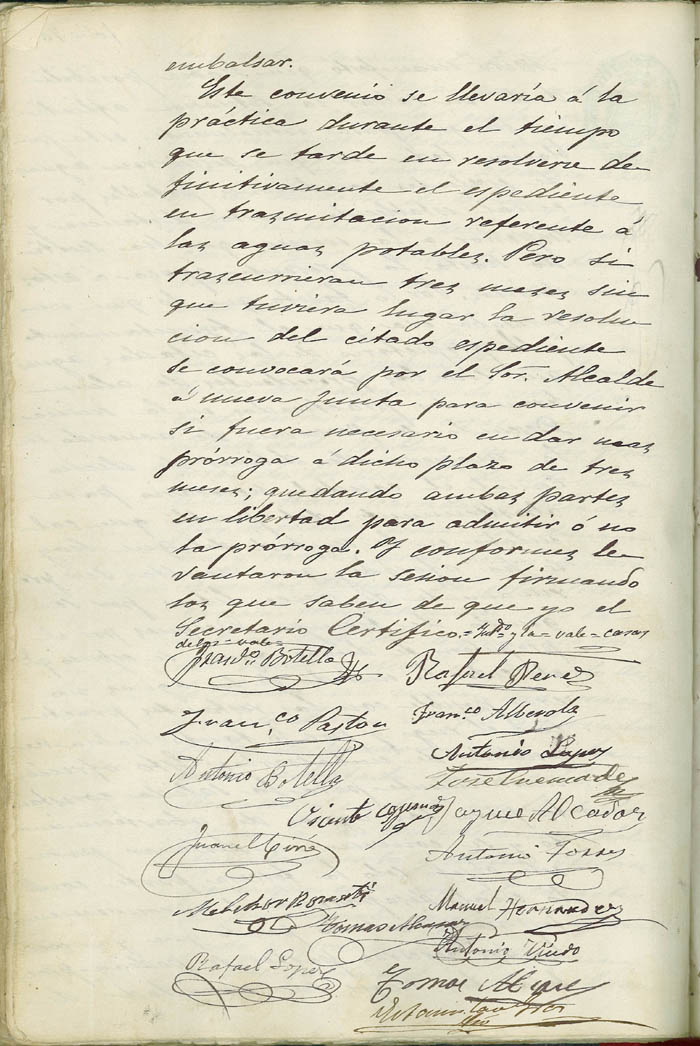 embalsar.
Este convenio se llevaría á la
práctica durante el tiempo
que se tarde en resolverse de
finitivamente el espediente
en trasmitacion referente á
las aguas potables. Pero si
trascurrieran tres meses sin
que tuviera lugar la resolu
cion del citado espediente
se convocará por el Sor. Alcalde
á nueva Junta para convenir
si fuera necesario en dar una
prórroga á dicho plazo de tres
meses; quedando ambas partes
en libertad para admitir ó no
la prórroga. Y conformes le
vantaron la sesion firmando
los que saben de que yo el
Secretario Certifico.= y la = vale = casas
de los = vale =
Botella Rafael Perez
Franco Pastor Franco Alberola
Antonio Lopez
Antonio Botella Jose
Vicente Jayme Alcaraz
Antonio Torres
Melchor Manuel Hernandez
Tomas Antonio
Rafael Lopez Tomas